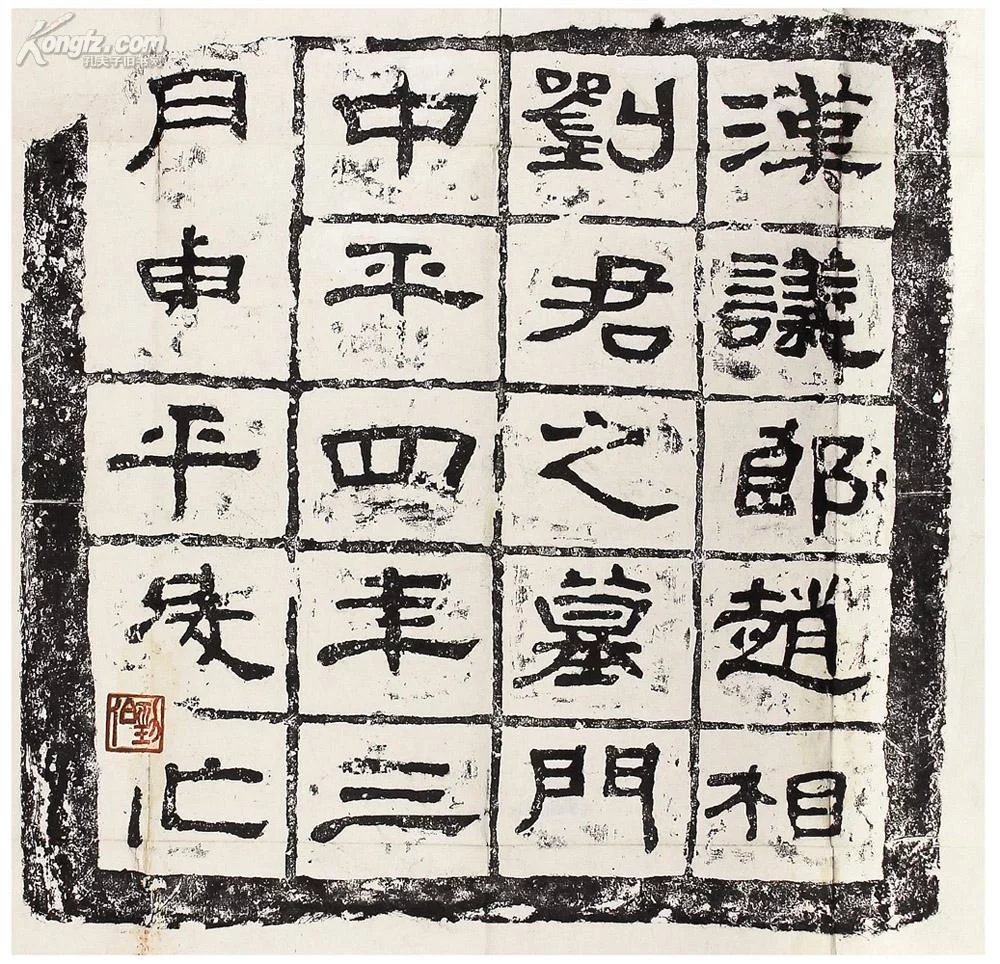 Kongfz.com
孔夫子旧书网
漢議郎趙相
劉君之墓門
中平四年三
月東平